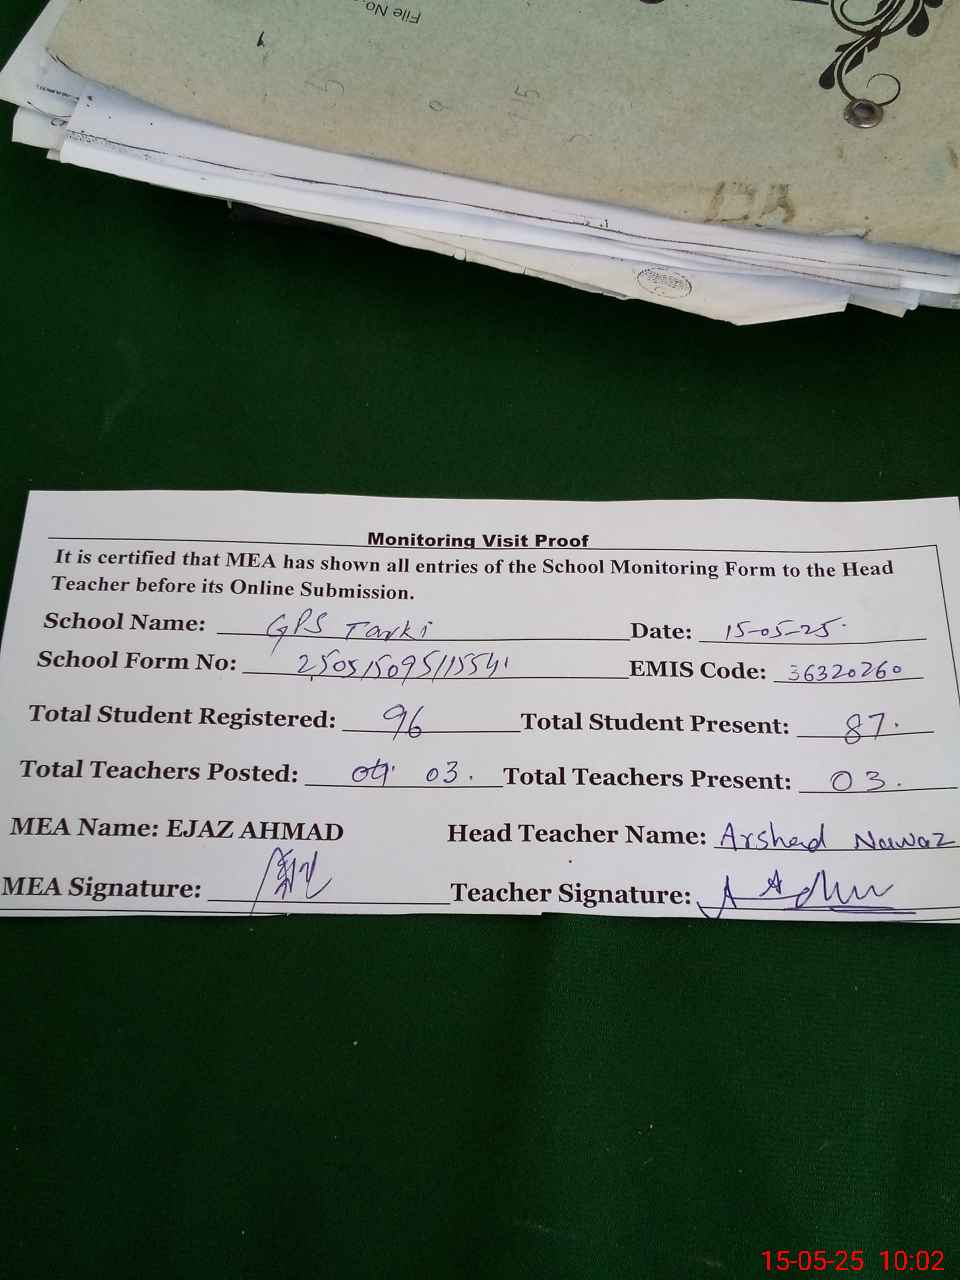 File No.
Monitoring Visit Proof
It is certified that MEA has shown all entries of the School Monitoring Form to the Head
Teacher before its Online Submission.
School Name: GPS Tarki Date: 15-05-25.
School Form No: 25051509515541 EMIS Code: 36320260
Total Student Registered: 96 Total Student Present: 87.
Total Teachers Posted: 03. Total Teachers Present: 03.
MEA Name: EJAZ AHMAD Head Teacher Name: Arshad Nawaz
MEA Signature: Teacher Signature:
15-05-25 10:02